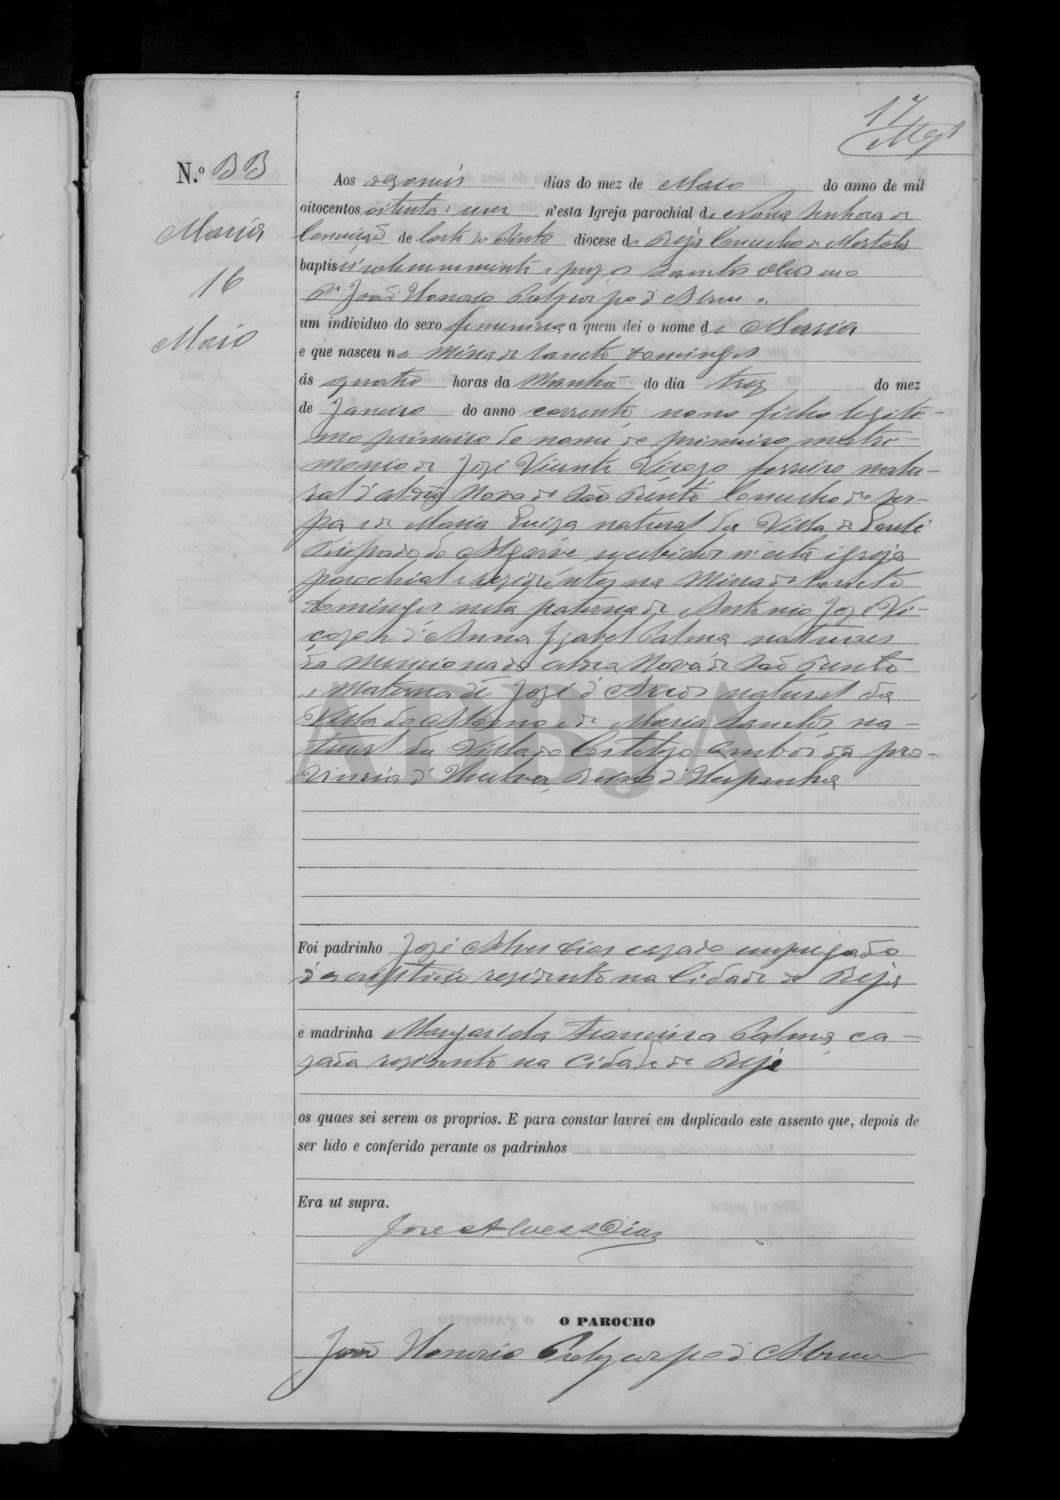 17
N.º 33
Maria
16
Maio
Aos dezaseis dias do mez de Maio do anno de mil
oitocentos oitenta e um n'esta Igreja parochial de Nossa Senhora da
Conceição de Corte do Pinto diocese de Beja Concelho de Mertola
baptisei solemnemente e puz os Sanctos Oleos eu o
P.e João Honorio Polycarpo d'Abreu a
um individuo do sexo femenino a quem dei o nome de Maria
e que nasceu na Mina de Sancto Domingos
ás quatro horas da Manhã do dia trez do mez
de Janeiro do anno corrente, filho legiti-
mo primeiro do nome de primeiro matri-
monio de José Vicente Viçozo ferreiro natu-
ral d'aldea Nova de São Bento Concelho de Ser-
pa e de Maria Luiza natural da Villa de Loulé
Bispado do Algarve recebidos n'esta igreja
parochial e rezidentes na Mina de Sancto
Domingos neta paterna de Antonio José Vi-
çozo e d'Anna Izabel Palma naturaes
da mencionada aldea Nova de São Bento
e Materna de José d' natural da
Villa do e de Maria Sanches na-
tural da Villa do ambos da pro-
vincia d'Huelva, Reino d'Hespanha
ADBJA
Foi padrinho José Alves Dias cazado empregado
d'escriptorio rezidente na Cidade de Beja
e madrinha Margarida Francisca Palma ca-
zada rezidente na Cidade de Beja
os quaes sei serem os proprios. E para constar lavrei em duplicado este assento que, depois de
ser lido e conferido perante os padrinhos
Era ut supra.
José Alves Dias
O PAROCHO
João Honorio Polycarpo d'Abreu